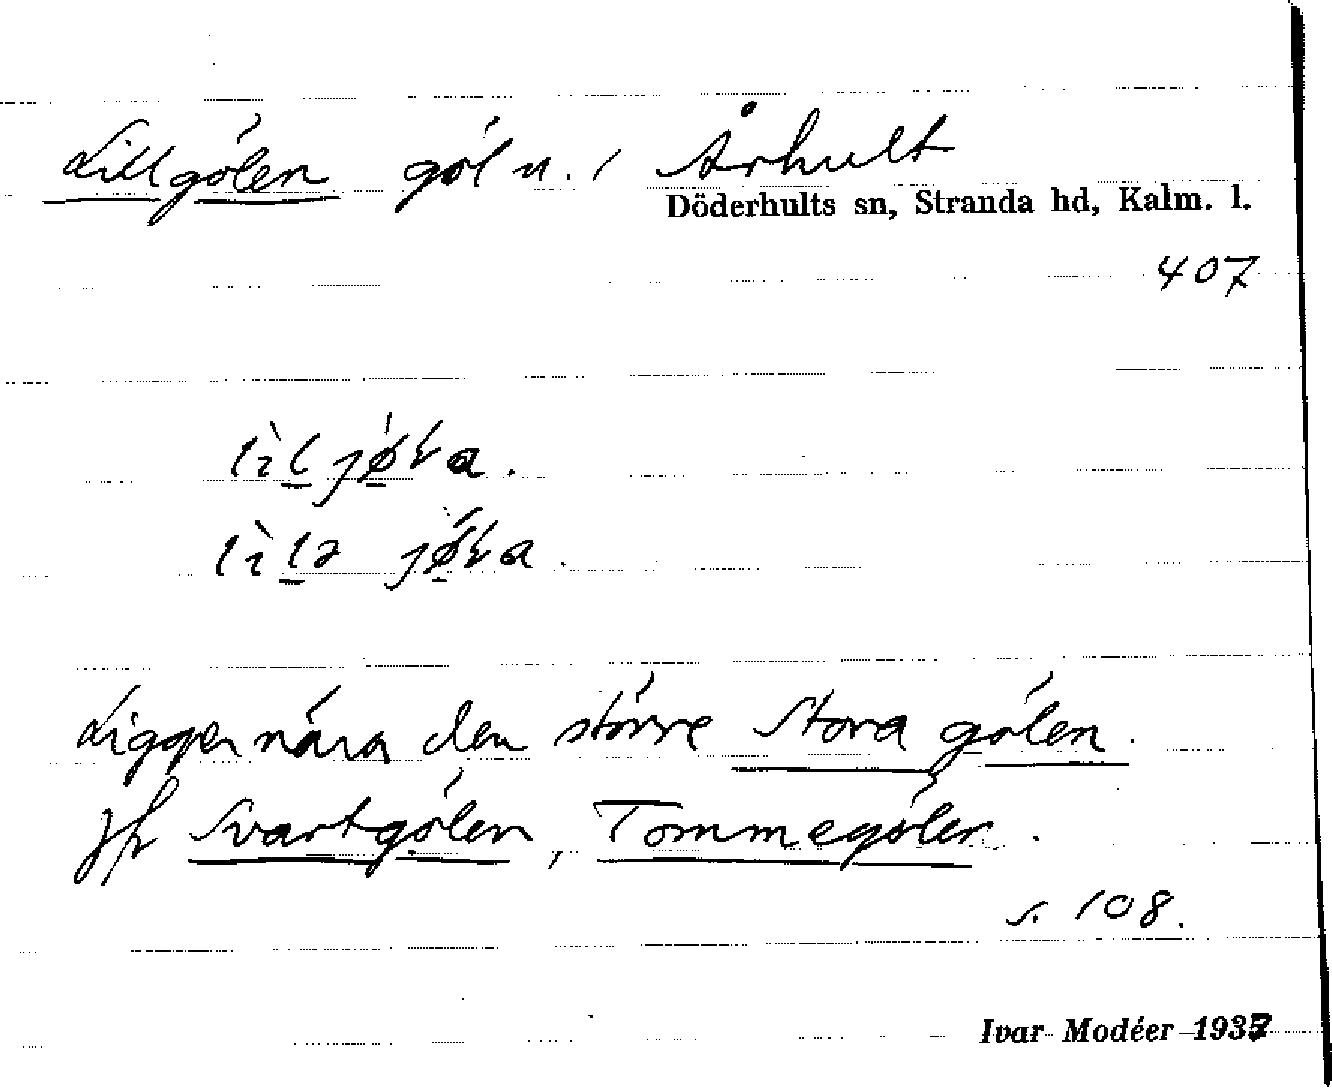 Lillgölen göl n. i Århult
Döderhults sn, Stranda hd, Kalm. l.
407
Ligger nära den större Stora gölen.
Jfr Svartgölen, Tommegölen.
s. 108.
Ivar Modéer 1937